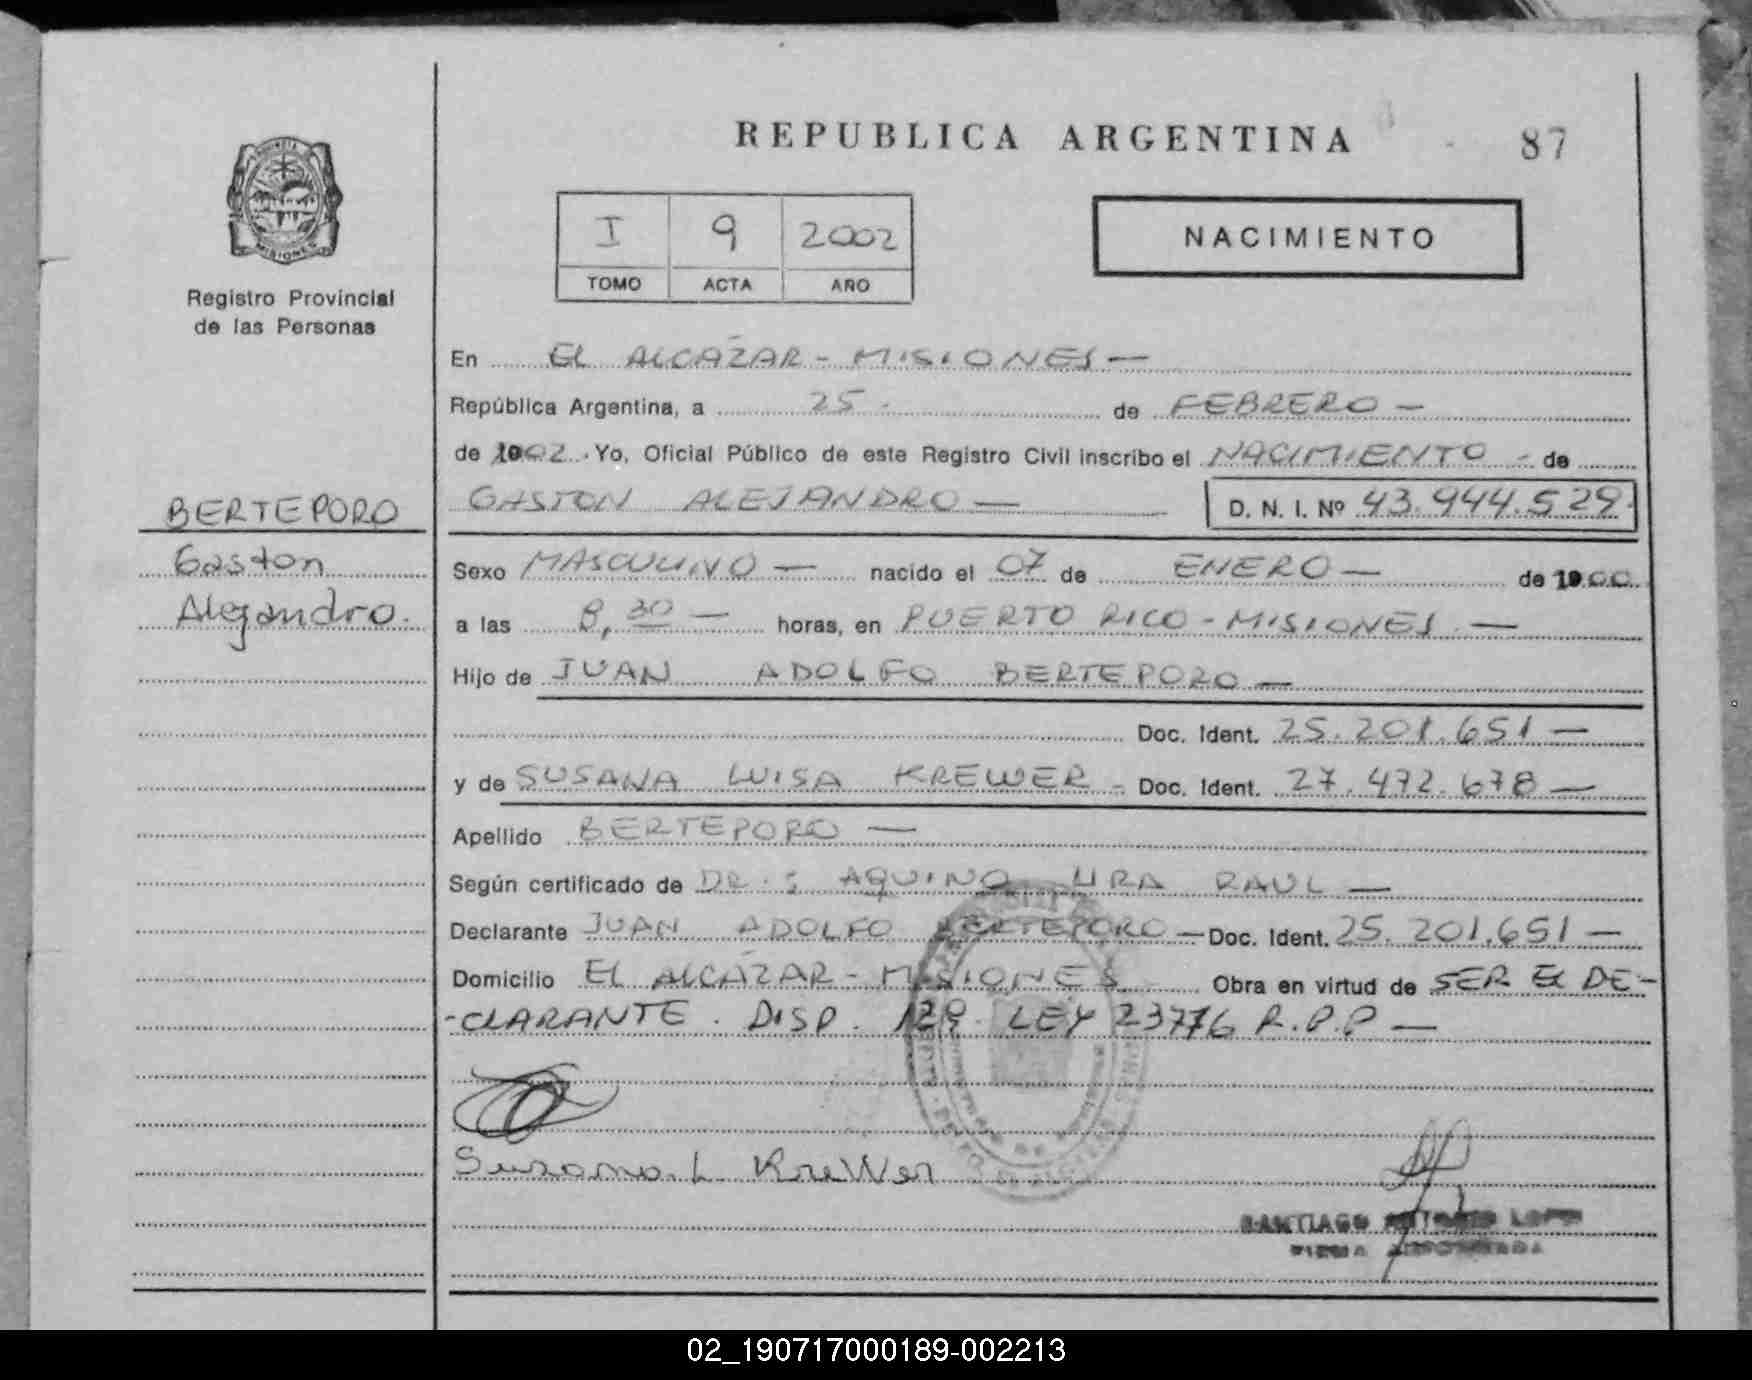 REPUBLICA ARGENTINA
87
PROVINCIA
MISIONES
Registro Provincial
de las Personas
I 9 2002
TOMO ACTA AÑO
NACIMIENTO
En EL ALCAZAR - MISIONES —
República Argentina, a 25 - de FEBRERO —
de 2002. Yo, Oficial Público de este Registro Civil inscribo el NACIMIENTO - de
GASTON ALEJANDRO — D. N. I. Nº 43.944.529.
BERTEPORO
Gaston
Alejandro.
Sexo MASCULINO — nacido el 07 de ENERO — de
a las 8,30 — horas, en PUERTO RICO - MISIONES. —
Hijo de JUAN ADOLFO BERTEPORO —
Doc. Ident. 25.201.651 —
y de SUSANA LUISA KREWER - Doc. Ident. 27.472.678 —
Apellido BERTEPORO —
Según certificado de DR.: AQUINO LIRA RAUL —
Declarante JUAN ADOLFO BERTEPORO — Doc. Ident. 25.201.651 —
Domicilio EL ALCAZAR - MISIONES Obra en virtud de SER EL DE-
-CLARANTE. DISP. 129. LEY 23776 R.P.P —
Susana L Krewer
SANTIAGO ANTONIO LOPEZ
FIRMA AUTORIZADA
02_190717000189-002213